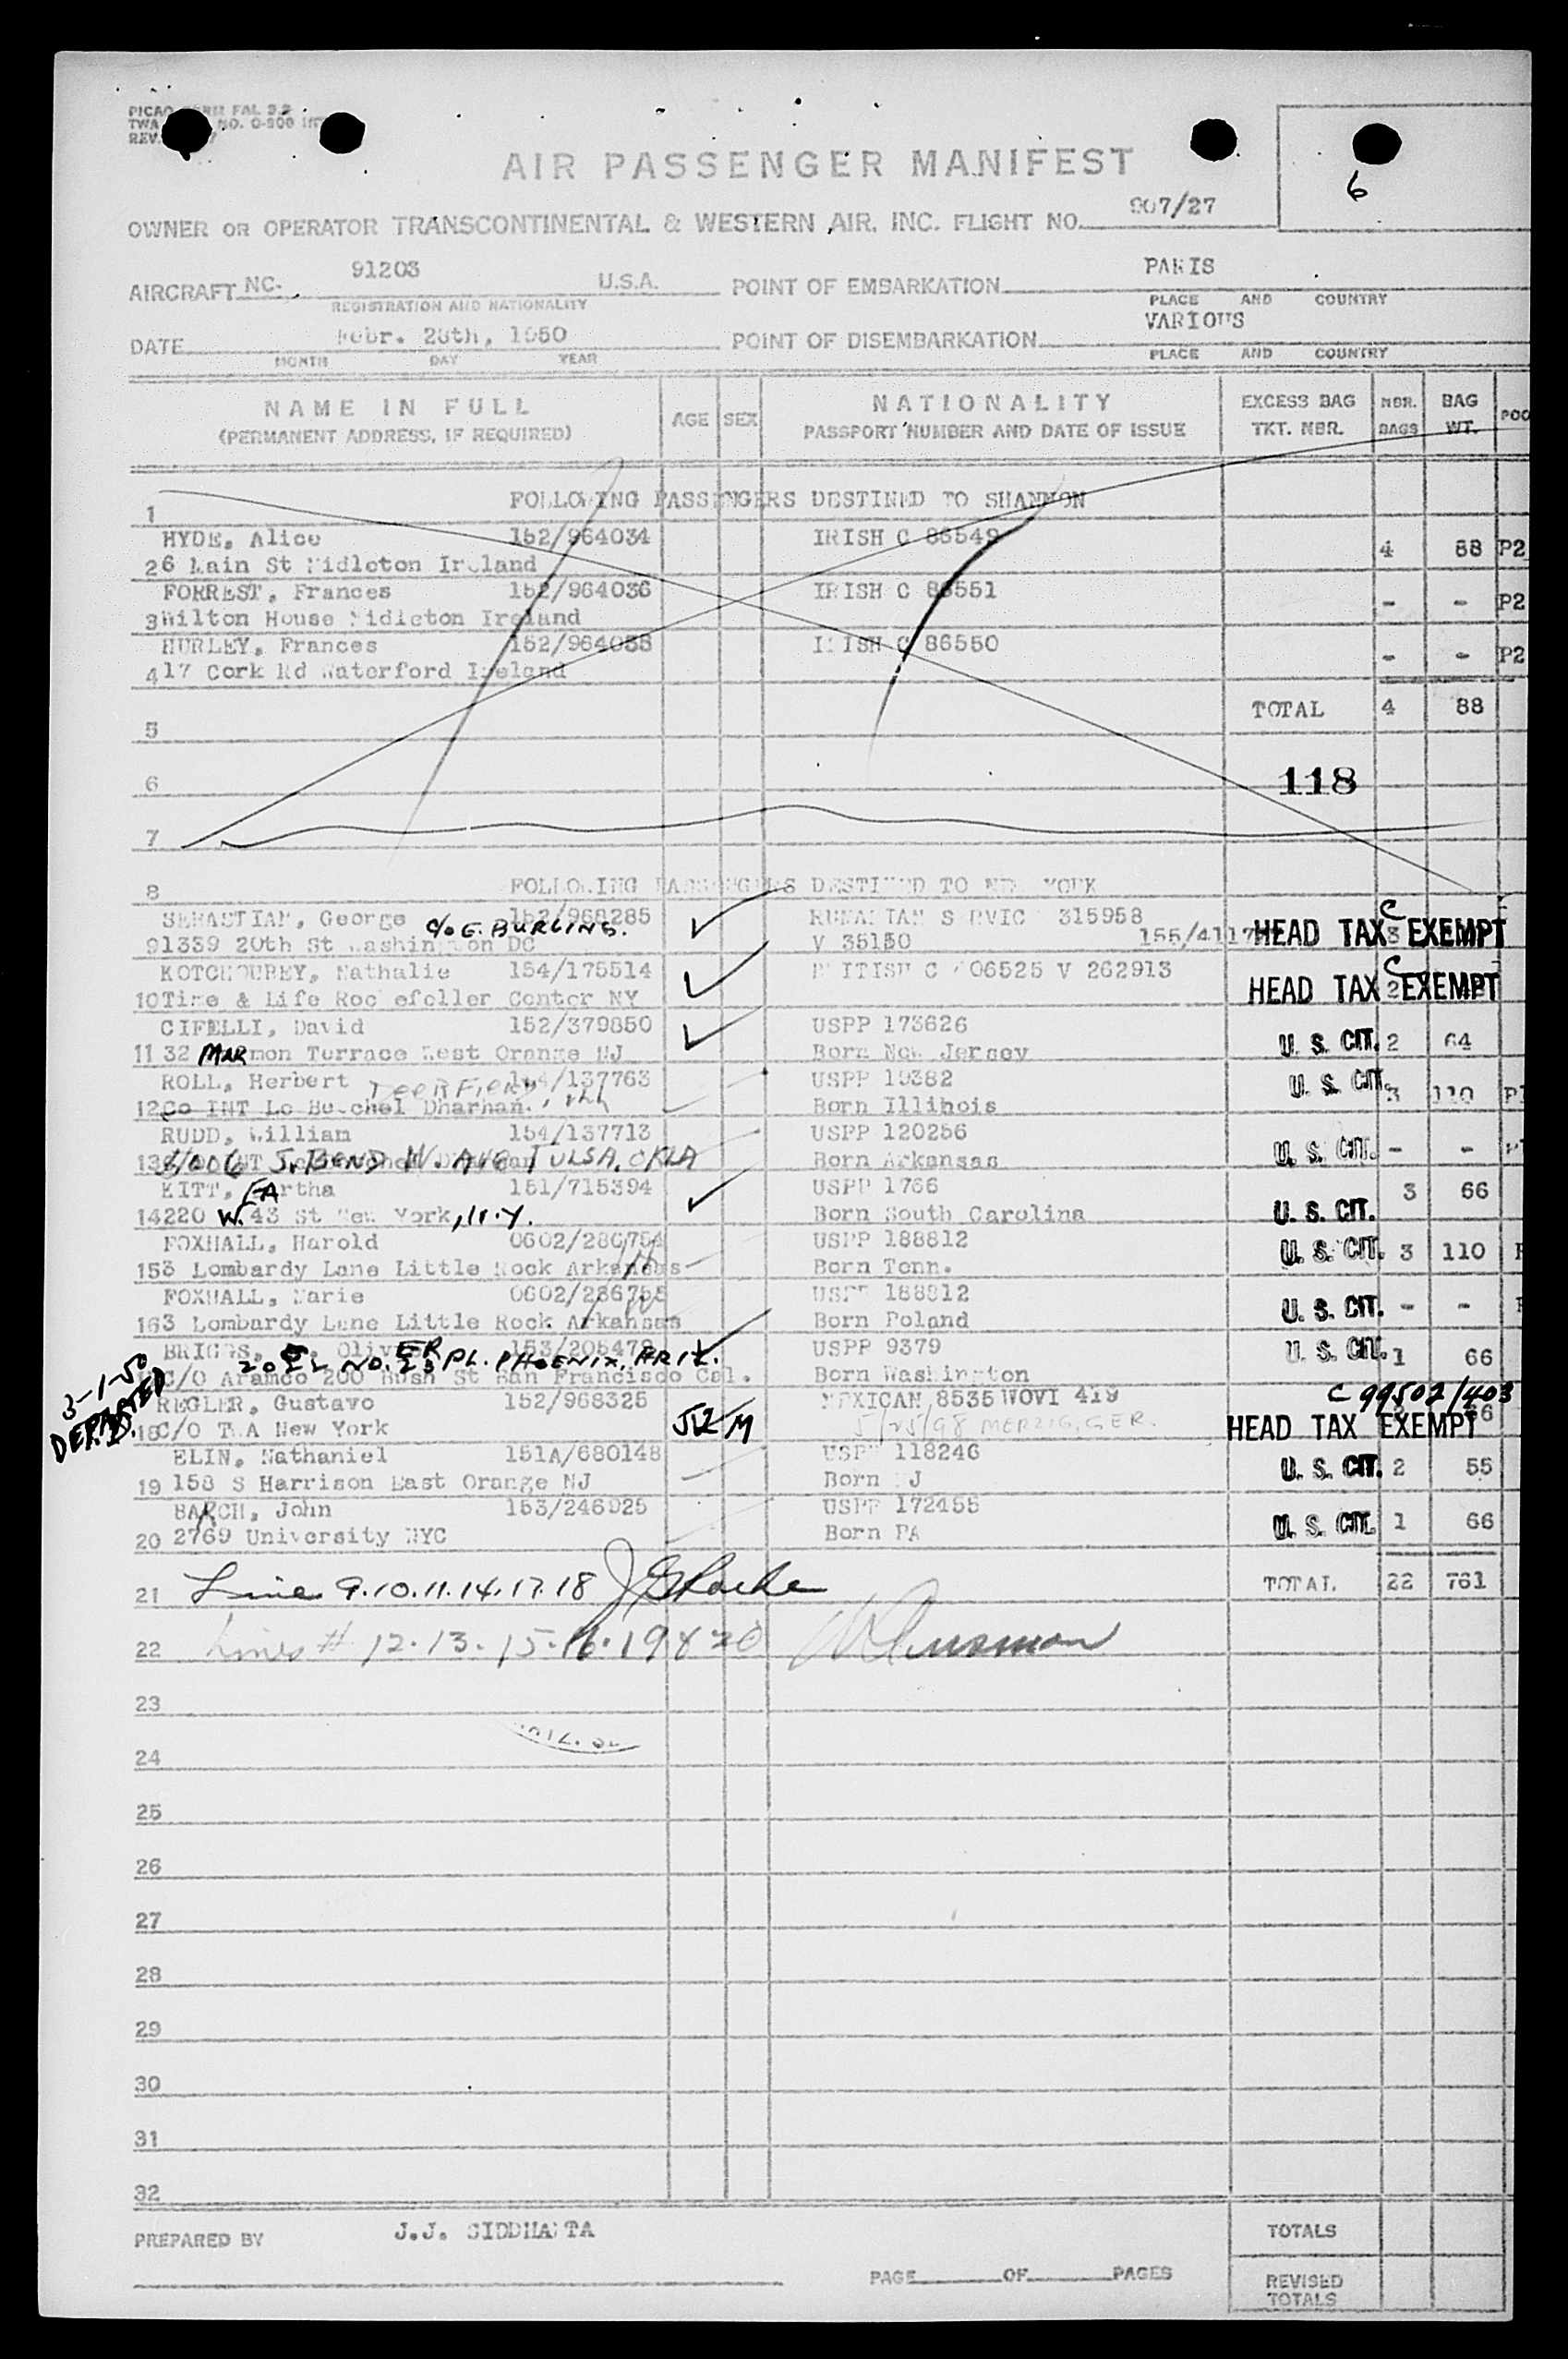 AIR PASSENGER MANIFEST
6
OWNER OR OPERATOR TRANSCONTINENTAL & WESTERN AIR, INC. FLIGHT NO. 907/27
AIRCRAFT NC- 91203 U.S.A. POINT OF EMBARKATION PARIS
REGISTRATION AND NATIONALITY PLACE AND COUNTRY
DATE Febr. 28th, 1950 POINT OF DISEMBARKATION VARIOUS
MONTH DAY YEAR PLACE AND COUNTRY
NAME IN FULL AGE SEX NATIONALITY EXCESS BAG NBR. BAG
(PERMANENT ADDRESS, IF REQUIRED) PASSPORT NUMBER AND DATE OF ISSUE TKT. NBR. BAGS WT.
1 FOLLOWING PASSENGERS DESTINED TO SHANNON
HYDE, Alice 152/964034 IRISH C 86549 4 88 P2
2 6 Main St Midleton Ireland
FORREST, Frances 152/964036 IRISH C 86551 - - P2
3 Wilton House Midleton Ireland
HURLEY, Frances 152/964038 IRISH C 86550 - - P2
4 17 Cork Rd Waterford Ireland
5 TOTAL 4 88
6 118
7
8 FOLLOWING PASSENGERS DESTINED TO NEW YORK
SEBASTIAN, George 152/968285 RUMANIAN SERVICE 315958
C/O E. BURLING.
9 1339 20th St Washington DC V 35150 155/4117 HEAD TAX EXEMPT
KOTCHOUBEY, Nathalie 154/175514 BRITISH C 406525 V 262913
10 Time & Life Rockefeller Center NY HEAD TAX EXEMPT
CIFELLI, David 152/379850 USPP 173626
11 32 MARmon Terrace West Orange NJ Born New Jersey U. S. CIT. 2 64
ROLL, Herbert 154/137763 USPP 19382 U. S. CIT. 3 110
DEERFIELD, Ill
12 Co INT Le Bechel Dharhan. Born Illinois
RUDD, William 154/137713 USPP 120256
13 S. BEND W. AVE TULSA, OKLA Born Arkansas U. S. CIT. - -
KITT, EArtha 151/715394 USPP 1766 3 66
14 220 W. 43 St New York, N.Y. Born South Carolina U. S. CIT.
FOXHALL, Harold 0602/286754 USPP 188812 U. S. CIT. 3 110
15 3 Lombardy Lane Little Rock Arkansas Born Tenn.
FOXHALL, Marie 0602/286755 USPP 188812
16 3 Lombardy Lane Little Rock Arkansas Born Poland U. S. CIT. - -
BRIGGS, E. OlivER 153/205478 USPP 9379 U. S. CIT. 1 66
NO. 23 PL. PHOENIX, ARIZ.
C/O Aramco 200 Bush St San Francisco Cal. Born Washington
3-1-50
DEPARTED
REGLER, Gustavo 152/968325 MEXICAN 8535 WOVI 419 C 99502/403
18 C/O TWA New York 52 M 5/25/98 MERZIG, GER. HEAD TAX EXEMPT 66
ELIN, Nathaniel 151A/680148 USPP 118246
19 158 S Harrison East Orange NJ Born NJ U. S. CIT. 2 55
BARCH, John 153/246925 USPP 172455
20 2769 University NYC Born PA U. S. CIT. 1 66
21 Line 9.10.11.14.17.18 TOTAL 22 761
22 Lines # 12.13.15.16.19 & 20
23
24
25
26
27
28
29
30
31
32
PREPARED BY J.J. SIDDHANTA TOTALS
PAGE OF PAGES REVISED
TOTALS